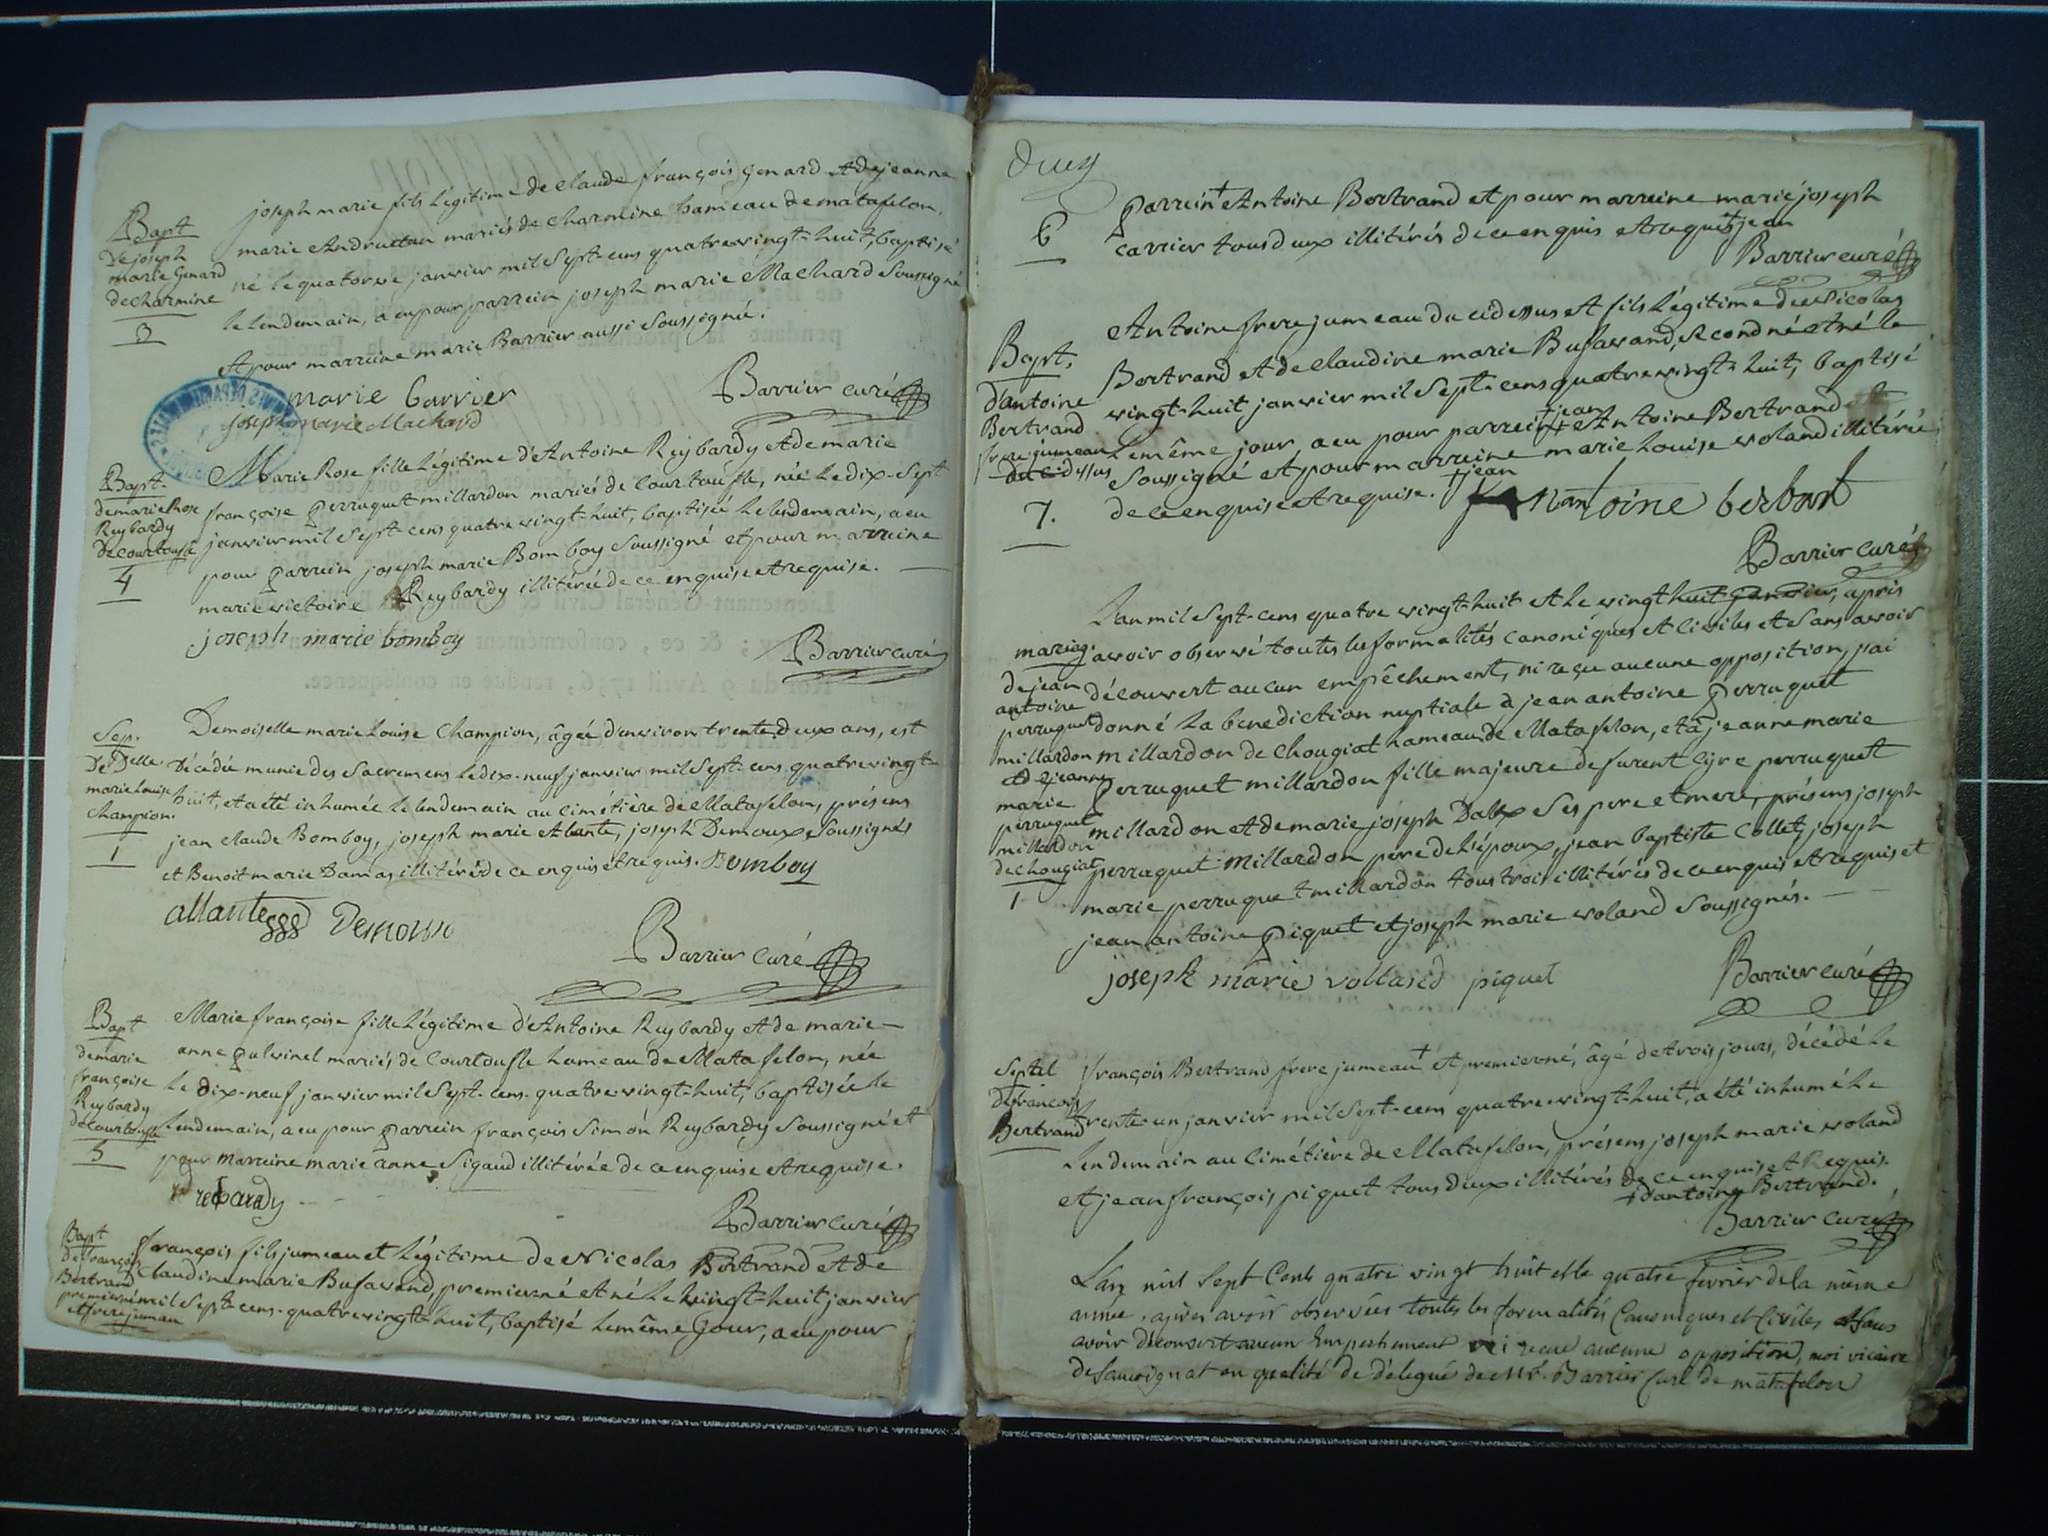 Bapt
De joseph
marie Genard
de charmine
3
joseph marie fils légitime de claude françois genard et de jeanne
marie Andruetan mariés de charmine hameau de matafelon,
né le quatorze janvier mil sept-cens quatrevingt-huit, baptisé
le lendemain, a eu pour parrein joseph marie Machard soussigné
et pour marreine marie Barrier aussi soussigné.
marie barrier
Barrier curé
joseph marie Machard
Bapt.
de marie Rose
Reybardy
de courtoufle
4
Marie Rose fille légitime d'Antoine Reybardy et de marie
françoise perruquet millardon mariés de Courtoufle, née le dix-sept
janvier mil sept-cens quatre vingt-huit, baptisée le lendemain, a eu
pour parrein joseph marie Bomboy soussigné et pour marreine
marie victoire Reybardy illitérée de ce enquise et requise.
joseph marie bomboy
Barrier curé
Sep.
De Delle
marie Louise
Champion.
1
Demoiselle marie Louise Champion, âgée d'environ trente deux ans, est
décédée munie des sacremens le dix-neuf janvier mil sept-cens quatrevingt-
huit, et a été inhumée le lendemain au cimétière de Matafelon, présens
jean claude Bomboy, joseph marie Allante, joseph Demoux soussignés
et Benoit marie Damas illitéré de ce enquis et requis. Bomboy
allante Demoux
Barrier curé
Bapt
de marie
françoise
Reybardy
de courtoufle
5
Marie françoise fille légitime d'Antoine Reybardy et de marie-
anne pulvinel mariés de Courtoufle hameau de Matafelon, née
le dix-neuf janvier mil sept-cens-quatrevingt-huit, baptisée le
lendemain, a eu pour parrein françois simon Reybardy soussigné et
pour marreine marie anne Sigaud illitérée de ce enquise et requise.
rebardy
Barrier curé
Bapt
de françois
Bertrand
premier né
et frere jumeau
françois fils jumeau et légitime de Nicolas Bertrand et de
Claudine marie Bufavand, premier né et né le vingt-huit janvier
mil sept-cens-quatrevingt-huit, baptisé le même jour, a eu pour
6
parrein + Antoine Bertrand et pour marreine marie joseph
carrier tous deux illitérés de ce enquis et requis + jean
Barrier curé
Bapt.
d'antoine
Bertrand
frere jumeau
du ci dessus
7.
Antoine frere jumeau du ci dessus et fils légitime de Nicolas
Bertrand et de claudine marie Bufavand, second né et né le
vingt-huit janvier mil sept-cens quatrevingt-huit, baptisé
le même jour, a eu pour parrein + jean Antoine Bertrand
soussigné et pour marreine marie Louise voland illitérée
de ce enquise et requise. + jean
antoine berbant
Barrier curé
mariag.
de jean
antoine
perruquet
millardon
et de jeanne
marie
perruquet
millardon
de chougiat
1
L'an mil sept-cens quatre vingt-huit et le vingt huit janvier, après
avoir observé toutes les formalités canoniques et civiles et sans avoir
découvert aucun empêchement, ni reçu aucune opposition, j'ai
donné la benediction nuptiale à jean antoine perruquet
millardon de chougiat hameau de Matafelon, et à jeanne marie
perruquet millardon fille majeure de furent Cyre perruquet
millardon et de marie joseph Dalix ses pere et mere, présens joseph
perruquet millardon pere de l'époux, jean baptiste Collet, joseph
marie perruquet millardon tous trois illitérés de ce enquis et requis et
jean antoine piquet et joseph marie voland soussignés.
joseph marie volland piquet
Barrier curé
Septel
de françois
Bertrand
françois Bertrand frere jumeau + et premier né, âgé de trois jours, décédé le
trente-un janvier mil sept-cens quatrevingt-huit, a été inhumé le
lendemain au cimétière de Matafelon, présens joseph marie voland
et jean françois piquet tous deux illitérés de ce enquis et Requis.
+ d'antoine Bertrand.
Barrier curé
L'an mil sept Cents quatre vingt huit et le quatre fevrier de la même
année, après avoir observées toutes les formalités Canoniques et Civiles et sans
avoir découvert aucun Empechement ni reçue aucune opposition, moi vicaire
de samognat en qualité de délegué de Mr. Barrier Curé de matafelon